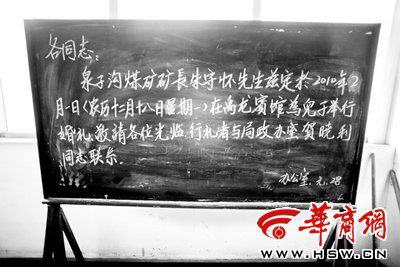 各同志:
泉子沟煤矿矿長朱守怀先生兹定於2010年2
月1日(农历十二月十八日星期一)在禹龙賓馆為兒子举行
婚礼敬請各位光临.行礼者与局政办室贺晓利
同志联系.
办公室.元.28
華商網
WWW.HSW.CN